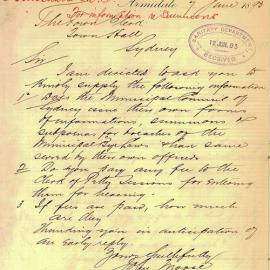 Armidale 7 June 1893
For information re Summons
The Town Clerk
Town Hall
Sydney
SANITARY DEPARTMENT
12 JUN. 93
RECEIVED
Sir
I am directed to ask you to
kindly supply the following information
1st Does the Municipal Council of
Sydney issue their own forms
of informations, summons &
subpoenas for breaches of the
Municipal By Laws & have same
served by their own officers
2 Do you pay any fee to the
Clerk of Petty Sessions for
them for hearing
3 If fees are paid, how much
are they
Thanking you in anticipation of
an early reply
Yours faithfully
John Moore